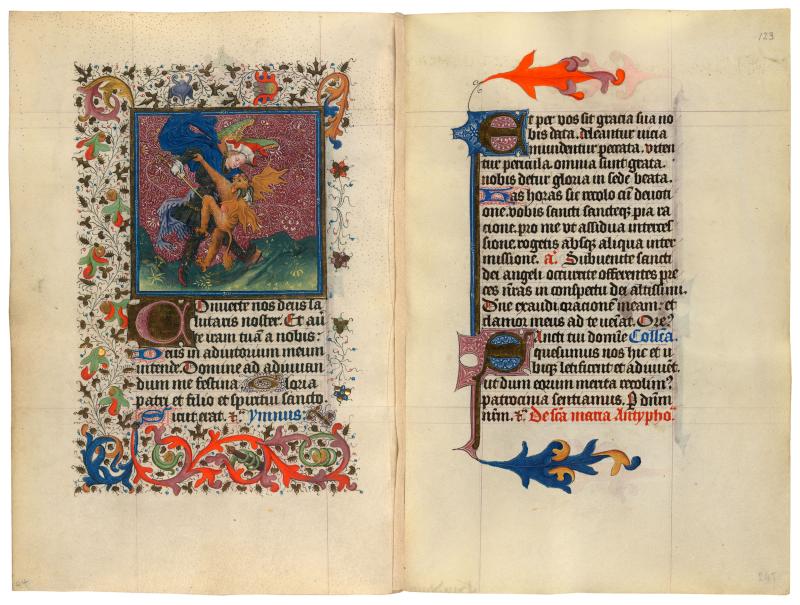 Onuerte nos deus sa
lutaris noster. Et aũ
te iram tuã a nobis:
Deus in adiutorium meum
intende. Domine ad adiuuan
dum me festina. Gloria
patri et filio et spiritui sancto.
Sicut erat. ymnus:
123
Et per vos sit gracia sua no
bis data. deleantur vicia
mundentur peccata. viten
tur pericula. omnia sint grata.
nobis detur gloria in sede beata.
Has horas sic recolo cũ deuoti
one. vobis sancti sancteqȝ pia ra
cione. pro me vt assidua interces
sione. rogetis absqȝ aliqua inter
missione. a. Subuenite sancti
dei angeli occurite offerentes pre
ces nr̃as in conspectu dei altissimi.
Dñe exaudi oracionẽ meam: et
clamor meus ad te veniat. Ore?
ancti tui domĩe Collca.
quesumus nos hic et u
biqȝ letificent et adiuuẽt.
ut dum eorum merita recolim?
patrocinia sentiamus. P dñm
nr̃m. De scã maria Antypho.
245